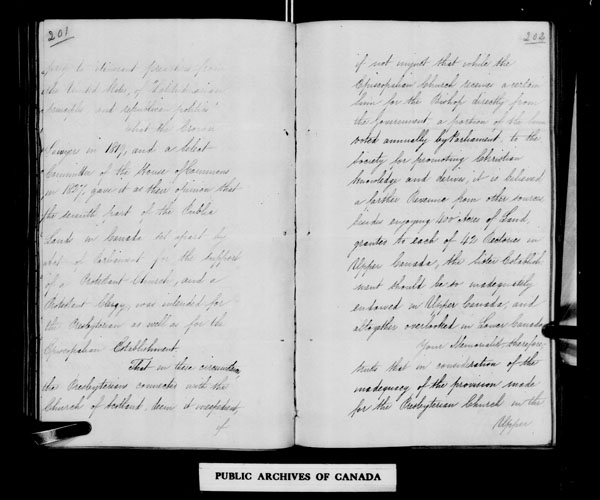 201
prey to itinerant preachers from
the United States, of Republican
principles and politics
That the Crown
Lawyers in 1819, and a Select
Committee of the House of Commons
in 1827, gave it as their opinion that
the seventh part of the Public
Lands in Canada set apart by
Act of Parliament for the support
of a Protestant Church, and a
Protestant Clergy, was intended for
the Presbyterian as well as for the
Episcopalian Establishment.
That in these circumstances
the Presbyterians connected with the
Church of Scotland, deem it inexpedient,
if
202
if not unjust that while the
Episcopalian Church receives a certain
Sum for the Bishop directly from
the Government, a portion of the Sum
voted annually by Parliament, to the
Society for promoting Christian
Knowledge and derives, it is believed
a further Revenue from other sources
besides enjoying 400 Acres of Land,
granted to each of 42 Rectories in
Upper Canada, the Sister Establish
ment should be so inadequately
endowed in Upper Canada, and
altogether overlooked in Lower Canada
Your Memorialists therefore,
that in consideration of the
inadequacy of the provision made
for the Presbyterian Church in the
Upper
PUBLIC ARCHIVES OF CANADA